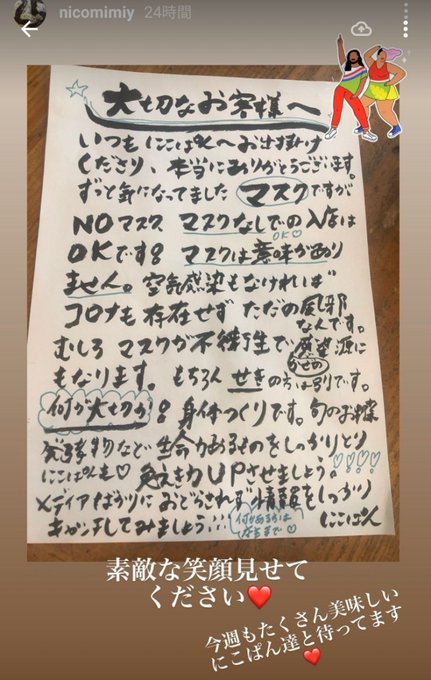 nicomimiy 24時間
大切なお客様へ
いつもにこぱんへお出掛け
くださり、本当にありがとうございます。
ずっと気になってました マスクですが
NOマスク マスクなしでの入店は
OK♡
OKです! マスクは意味があり
ません。空気感染もなければ
コロナも存在せず ただの風邪
なんです。
むしろ マスクが不衛生で 感染源に
もなります。 もちろん せきの方は別です。
かぜの
何が大切か! 身体づくりです。旬のお野菜
発酵食物など 生命力あるものをしっかりとり
にこぱんも♡ 免えき力UPさせましょう。!!!!
メディアばかりにおどらされず 情報をしっかり
キャッチしてみましょう…
にこぱん
素敵な笑顔見せて
ください❤️
今週もたくさん美味しい
にこぱん達と待ってます
❤️